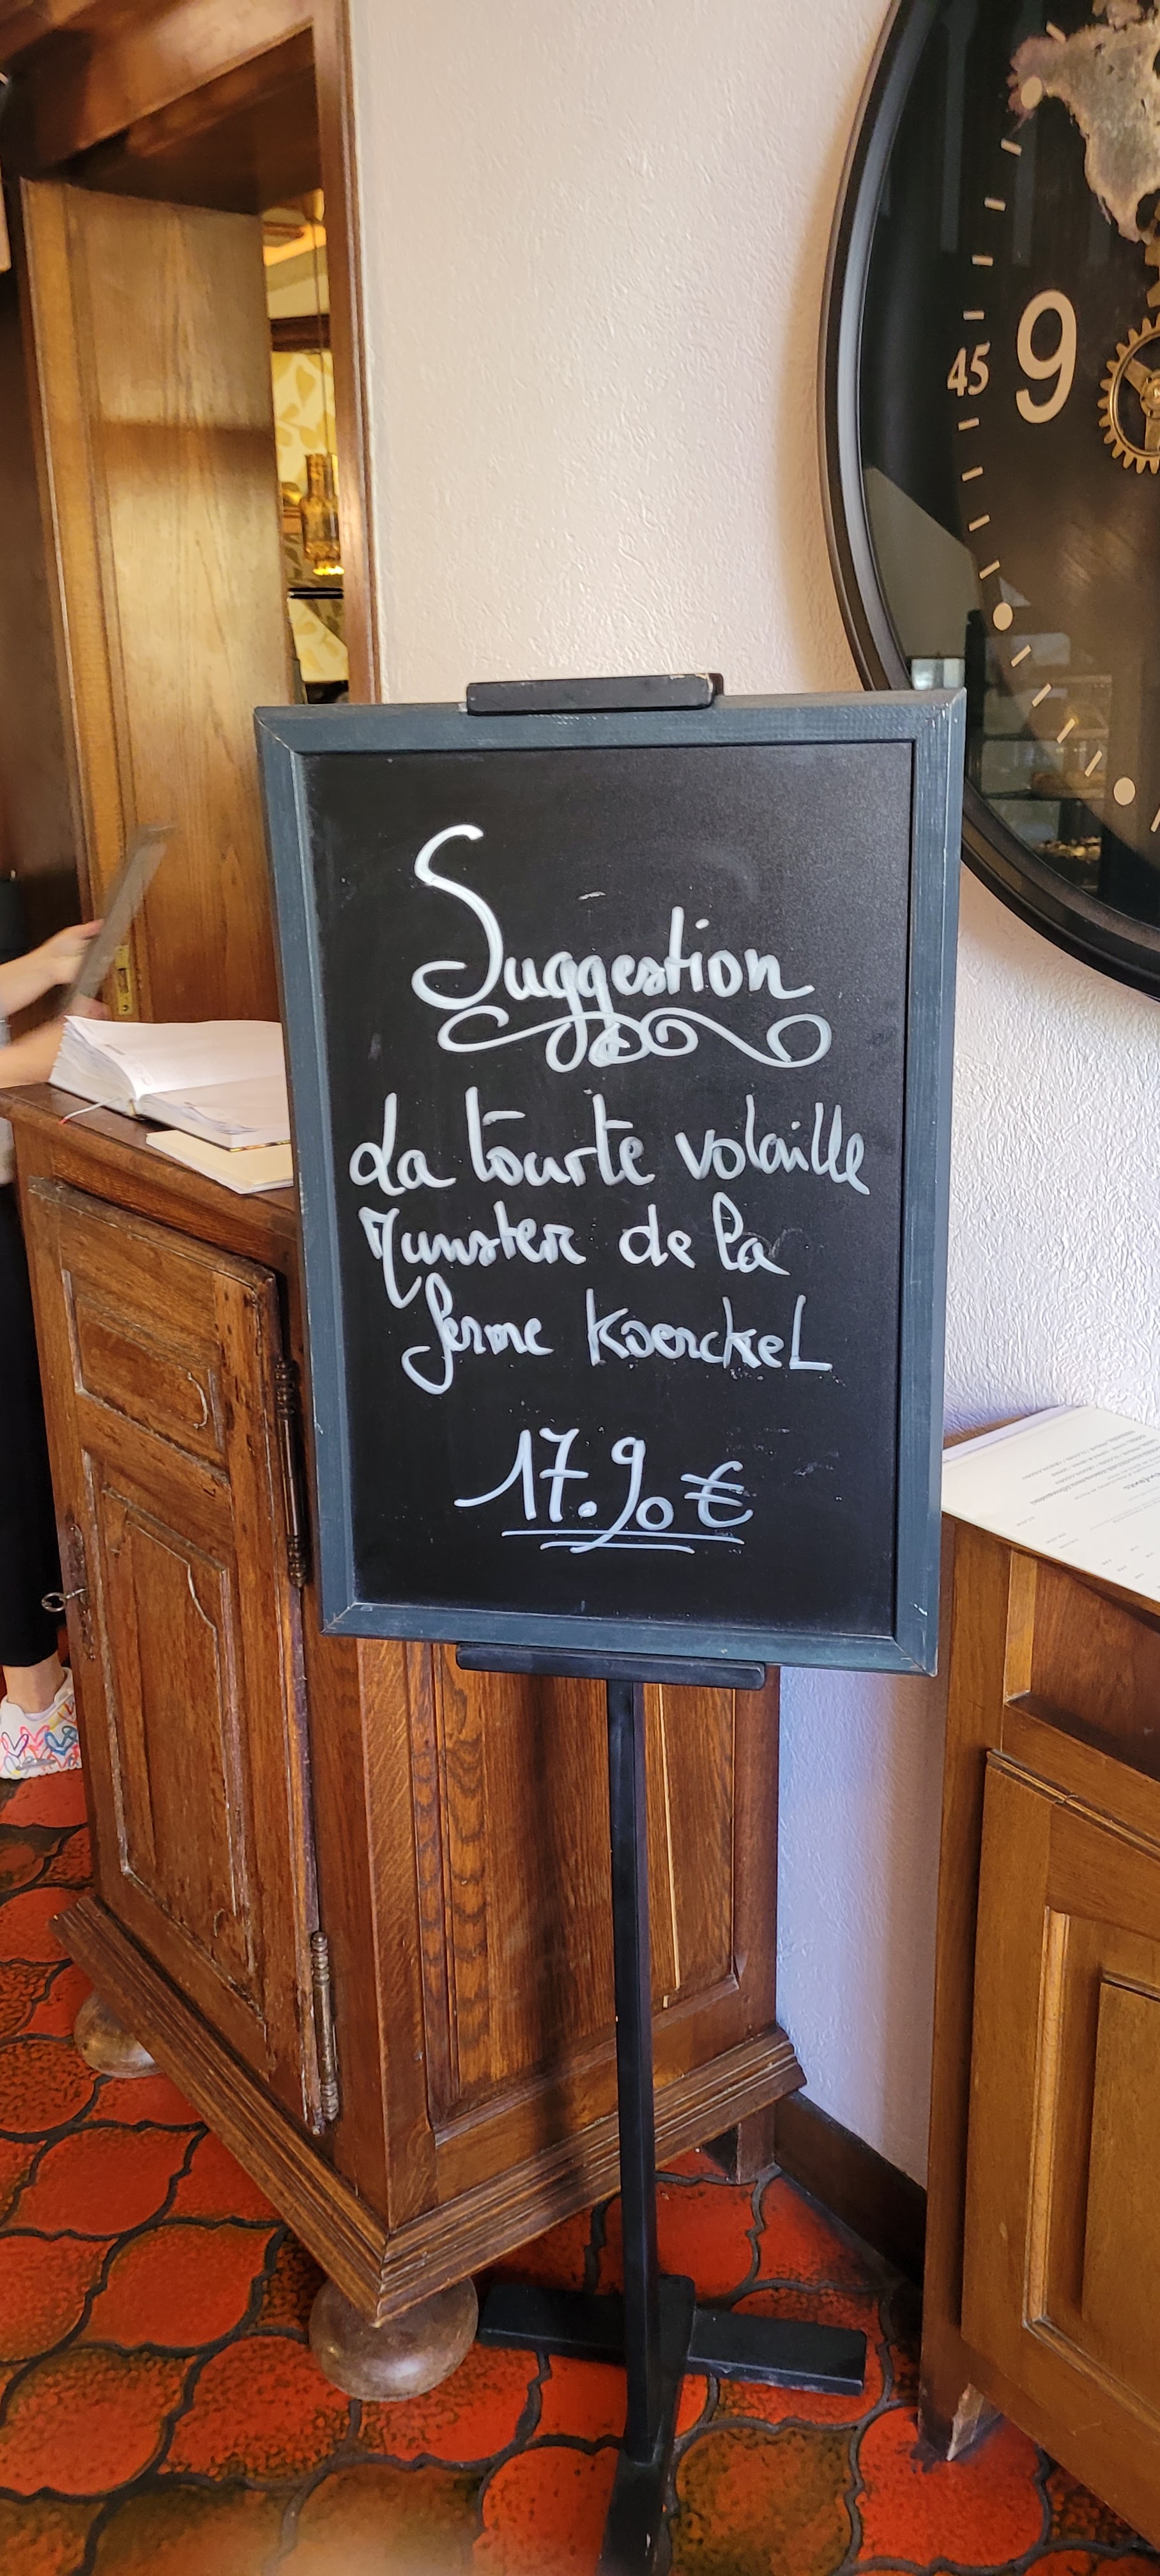 45 9
Suggestion
La tourte volaille
Munster de la
ferme KoerckeL
17.90€